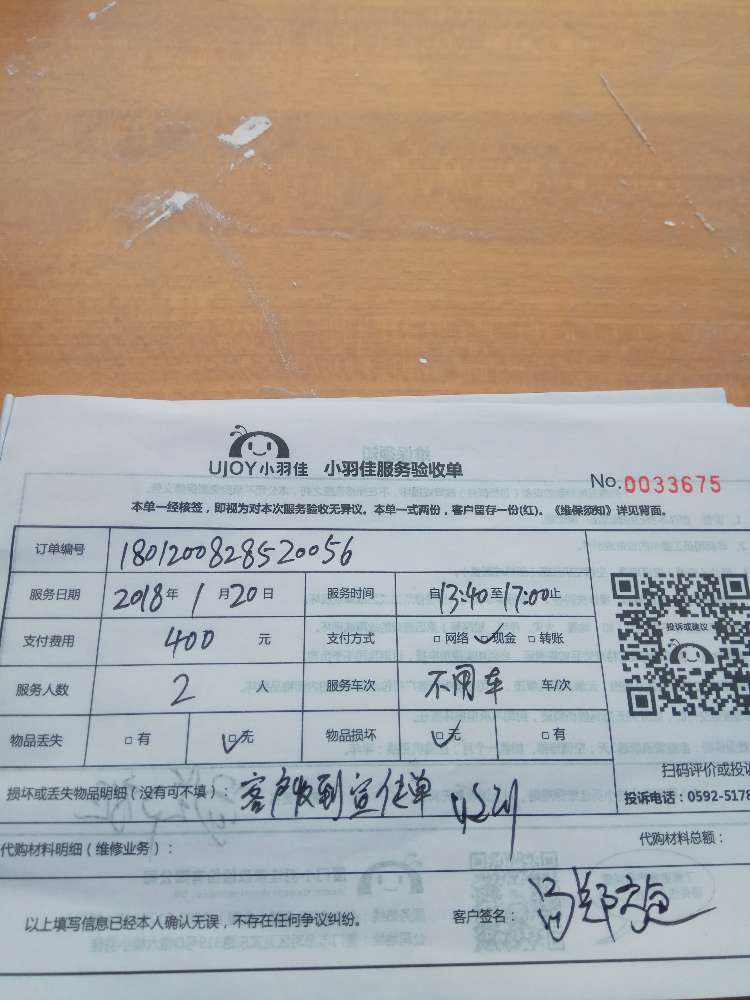 UJOY小羽佳 小羽佳服务验收单
No.0033675
本单一经核签，即视为对本次服务验收无异议。本单一式两份，客户留存一份(红)。《维保须知》详见背面。
订单编号 1801200828520056
服务日期 2018年1月20日 服务时间 自13:40至17:00止
投诉或建议
支付费用 400 元 支付方式 □网络 ☑现金 □转账
服务人数 2 人 服务车次 不用车 车/次
物品丢失 □有 ☑无 物品损坏 ☑无 □有
扫码评价或投诉
损坏或丢失物品明细（没有可不填）：客户收到宣传单 收到
投诉电话：0592-5178
代购材料明细（维修业务）： 代购材料总额：
以上填写信息已经本人确认无误，不存在任何争议纠纷。 客户签名：